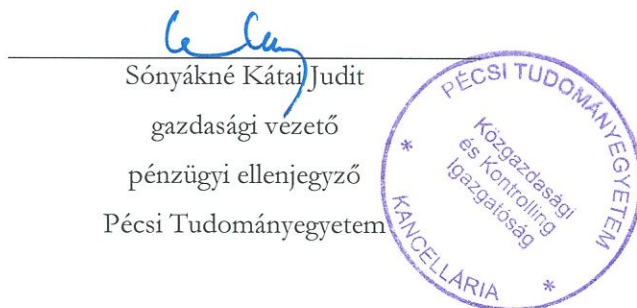 Sónyákné Kátai Judit
gazdasági vezető
pénzügyi ellenjegyző
Pécsi Tudományegyetem
PÉCSI TUDOMÁNYEGYETEM
Közgazdasági
és Kontrolling
Igazgatóság
* KANCELLÁRIA *